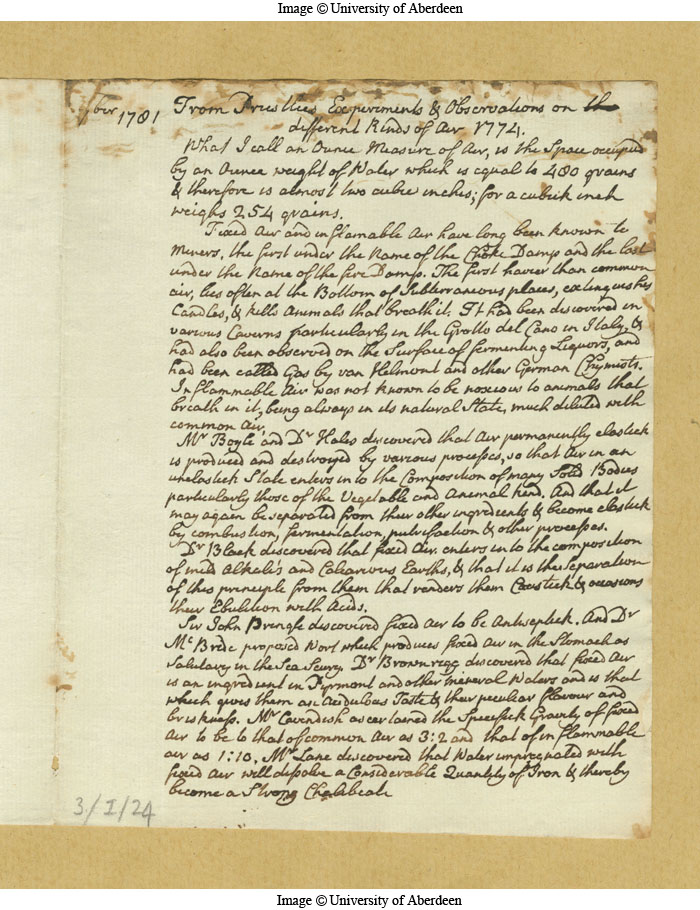 Image © University of Aberdeen
ber 1781 From Priestlies Experiments & Observations on th
different Kinds of Air 1774.
What I call an Ounce Measure of Air, is the Space occupied
by an Ounce weight of Water which is equal to 480 grains
& therefore is almost two cubic inches; for a cubick inch
weighs 254 grains.
Fixed Air and inflamable Air have long been known to
Miners, the first under the Name of the Choke Damp and the last
under the Name of the fire Damp. The first havier than common
air, lies often at the Bottom of Subterraneous places, extinguishes
Candles, & kills Animals that breath it; It had been discovered in
various Caverns particularly in the Grotto del Cano in Italy, &
had also been observed on the Surface of fermenting Liquors, and
had been called Gas by van Helmont and other German Chymists.
Inflammable Air was not known to be noxious to animals that
breath in it, being always in its natural State, much diluted with
common air.
Mr Boyle and Dr Hales discovered that Air permanently elastick
is produced and destroyed by various processes, so that Air in an
unelastick State enters into the Composition of many Solid Bodies
particularly those of the Vegetable and Anemal kind. And that it
may again be separated from their other ingredients & become elastick
by combustion, fermentation, putrifaction & other processes.
Dr Black discovered that fixed Air enters into the composition
of mild Alkalis and Calcarious Earths, & that it is the Separation
of this principle from them that renders them Caustick & occasions
their Ebulition with Acids.
Sir John Pringle discovered fixed Air to be Antiseptick. And Dr
McBride proposed Wort which produces fixed Air in the Stomach as
Salutary in the Sea Scurvy. Dr Brownrigg discovered that fixed Air
is an ingredient in Pyrmont and other mineral Waters and is that
which gives them an Acidulous Taste & their peculiar flavour and
briskness. Mr Cavendish ascertained the Specifick Gravity of fixed
Air to be to that of common Air as 3:2 and that of inflammable
air as 1:10. Mr Lane discovered that Water impregnated with
fixed Air will dissolve a Considerable Quantity of Iron & thereby
become a Strong Chalibeate
3/I/24
Image © University of Aberdeen